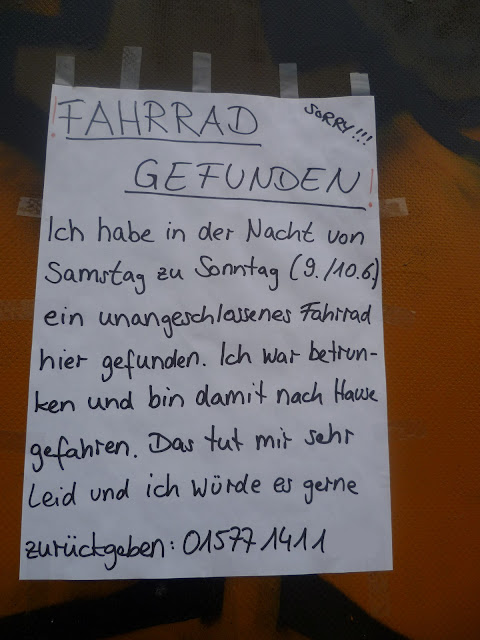 FAHRRAD
SORRY!!!
! GEFUNDEN !
Ich habe in der Nacht von
Samstag zu Sonntag (9./10.6)
ein unangeschlassenes Fahrrad
hier gefunden. Ich war betrun-
ken und bin damit nach Hause
gefahren. Das tut mir sehr
Leid und ich würde es gerne
zurückgeben: 015771411